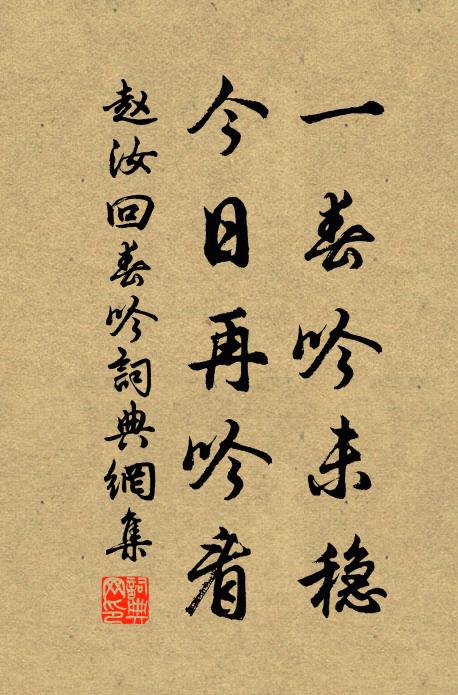 一春吟未稳
今日再吟看
赵汝回春吟詞典網集
詞典网印